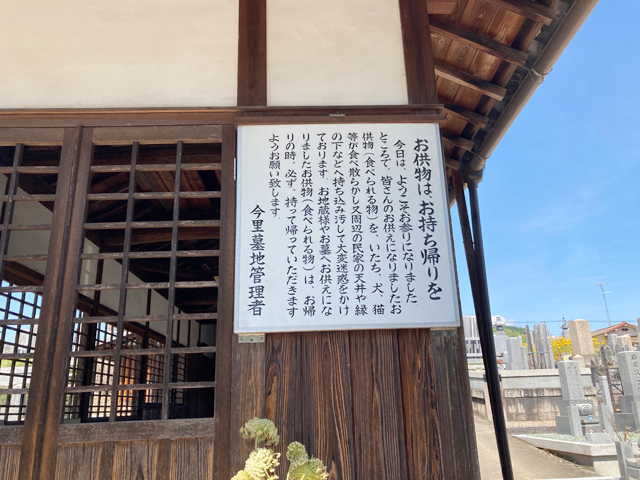 お供物は、お持ち帰りを
今日は、ようこそお参りになりました。
ところで、皆さんのお供えになりましたお
供物（食べられる物）を、いたち、犬、猫
等が食べ散らかし又周辺の民家の天井や縁
の下などへ持ち込み汚して大変迷惑をかけ
ております。お地蔵様やお墓へお供えにな
りましたお供物（食べられる物）は、お帰
りの時、必ず、持って帰っていただきます
ようお願い致します。
今里墓地管理者